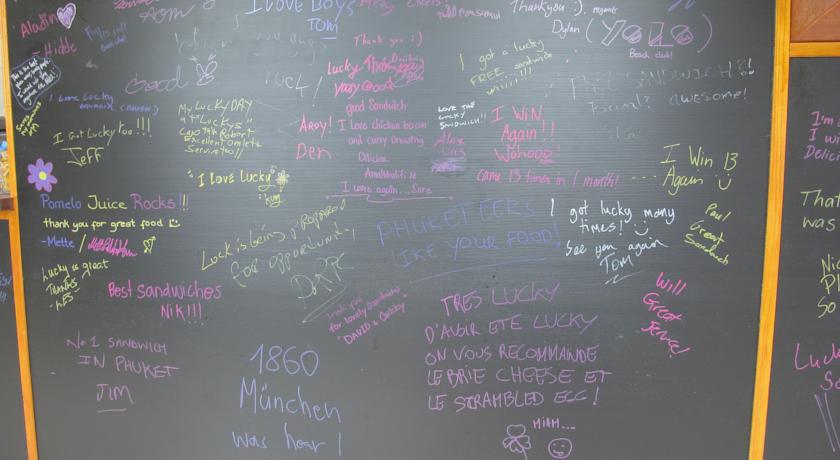 I LOVE BOYS
TOM
Thankyou :).
Dylan (YOLO)
Beach dud!
Aladin
~ Hidde
Good
luck!
Thank you :)
Lucky
very Good
good Sandwich
I love chicken bacon
and curry Dressing
Delicious
I come again... Sure
I got a lucky
FREE sandwich
FREE SANDWICH?!
awesome!
I Got Lucky Too!!!
Jeff
My Lucky DAY
AT "Luckys"
Robert
Excellent omlets
Service too!!
Aroy!
Den
LOVE THE
LUCKY
SANDWICH!!
I WIN
Again!!
Wohooo!
Came 13 times in 1 month!
I Win 13
Again :)
"I LOVE Lucky"
Pomelo Juice Rocks!!!
thank you for great food
-Mette /
Lucky is great
THANKS
Best sandwiches
Nik!!!
Luck is being prepared
for opportunity
PHUKETEERS
LIKE YOUR FOOD!
I got lucky many
times! :)
See you again
TOM
Paul
Great
Sandwich
Thank you
for lovely
"DAVID &
Will
Great
Service!
TRES LUCKY
D'AVOIR ETE LUCKY
ON VOUS RECOMMANDE
LE BRIE CHEESE ET
LE SCRAMBLED EGG!
MIAM...
No 1 SANDWICH
IN PHUKET
JIM
1860
München
was hear!